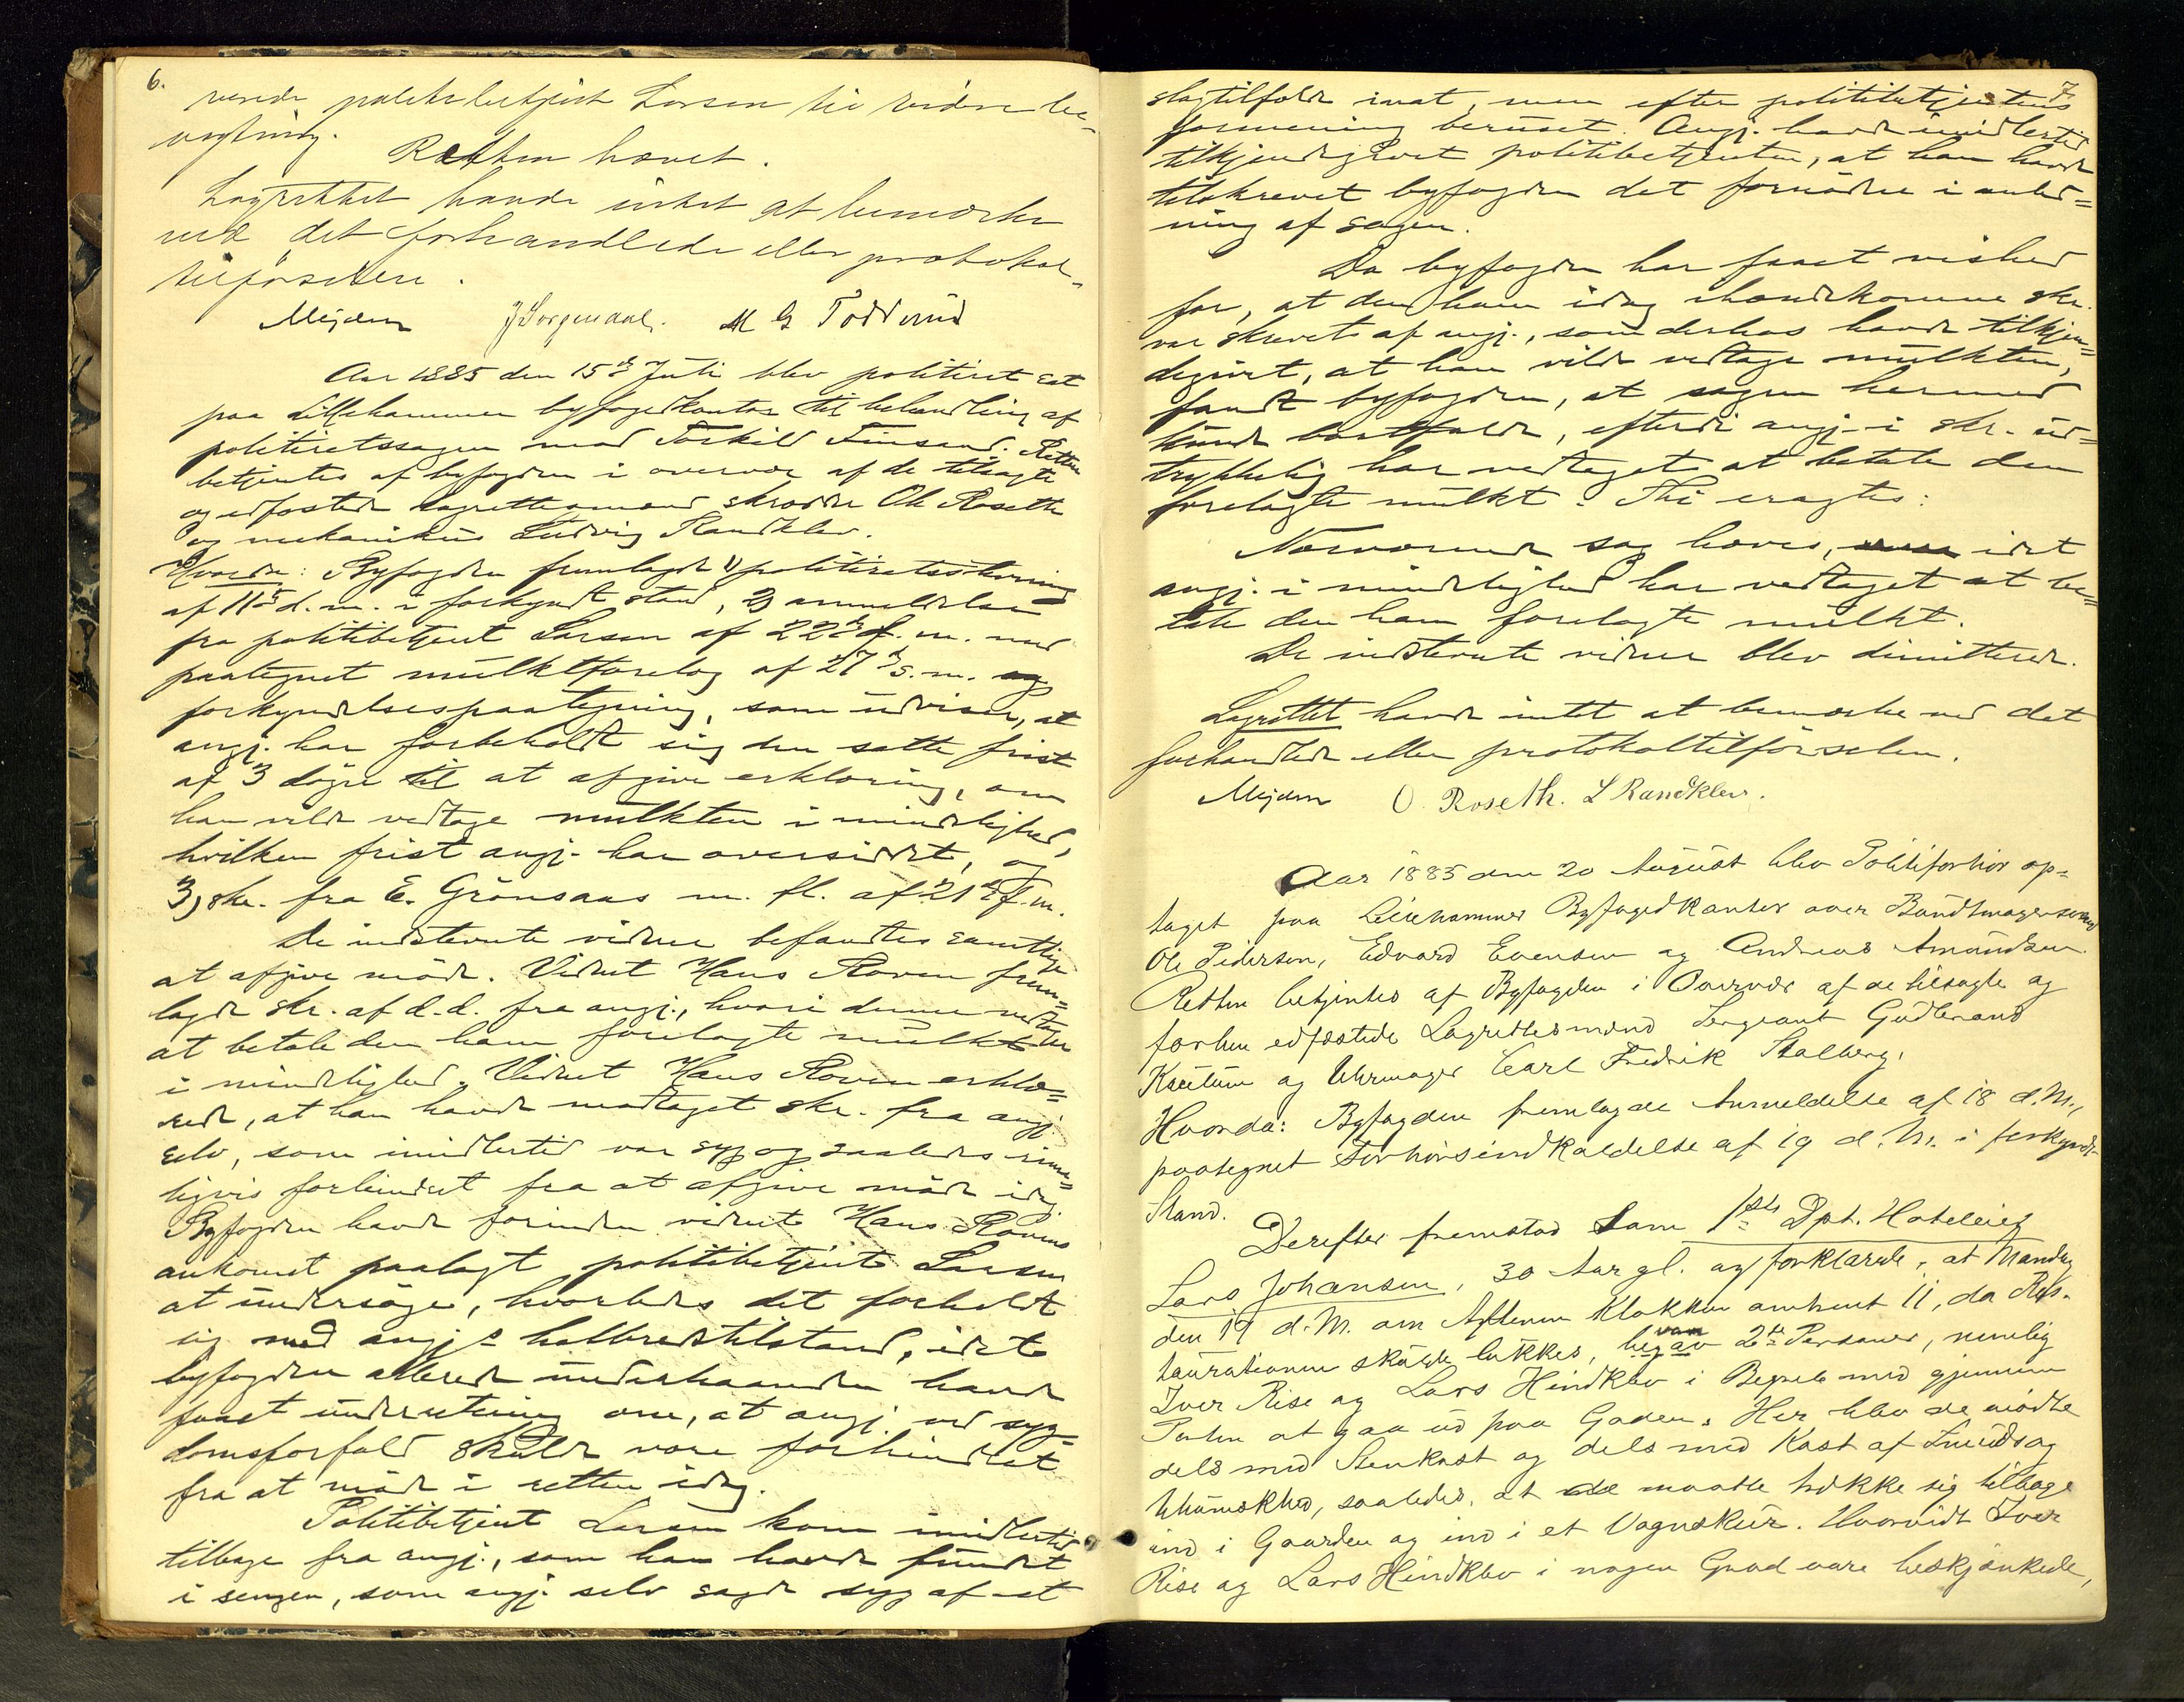 6.
værende politibetjent Larsen til videre be-
vogtning.
Retten hævet.
Lagrettet havde intet at bemærke
ved det forhandlede eller protokol-
tilførselen.
Mejdem J Jørgendal. M G Todderud
Aar 1885 den 15de Juli blev politiret sat
paa Lillehammer byfogedkontor til behandling af
politiretssagen mod Torkild Finsand. Retten
betjentes af byfogden i overvær af de tilsagte
og edfæstede lagrettesmænd skrædder Ole Roseth
og mekanikus Ludvig Randklev.
Hvorda: Byfogden fremlagde 1) politiretsstevning
af 11te d. m. i forkyndt stand, 2) anmeldelse
fra politibetjent Larsen af 22de f. m. med
paategnet mulktforelæg af 27de s. m. og
forkyndelsespaategning, som udviser, at
angj. har forbeholdt sig den satte frist
af 3 døgn til at afgive erklæring, om
han vilde vedtage mulkten i mindelighed,
hvilken frist angj. har oversiddet, og
3) skr. fra E. Grønsaas m. fl. af 21de f. m.
De indstevnte vidner befandtes samtlige
at afgive møde. Vidnet Hans Roven frem=
lagde skr. af d. d. fra angj., hvori denne vedtager
at betale den ham forelagte mulkt
i mindelighed. Vidnet Hans Roven erklæ=
rede, at han havde modtaget skr. fra angj.
selv, som imidlertid var syg og saaledes rime=
ligvis forhindret fra at afgive møde idag.
Byfogden havde forinden vidnet Hans Rovens
ankomst paalagt politibetjent Larsen
at undersøge, hvorledes det forholdt
sig med angj.s helbredstilstand, idet
byfogden allerede underhaanden havde
faaet underretning om, at angj. ved syg-
domsforfald skulde være forhindret
fra at møde i retten idag.
Politibetjent Larsen kom imidlertid
tilbage fra angj., som han havde fundet
i sengen, som angj. selv sagde syg af et
7.
slagtilfælde inat, men efter politibetjentens
formening beruset. Angj. havde imidlertid
tilkjendegivet politibetjenten, at han havde
tilskrevet byfogden det fornødne i anled=
ning af sagen.
Da byfogden har faaet vished
for, at den ham idag ihændekomne skr.
var skrevet af angj., som derhos havde tilkjen=
degivet, at han vilde vedtage mulkten,
fandt byfogden, at sagen hermed
kunde bortfalde, efterdi angj. i skr. ud=
trykkelig har vedtaget at betale den
forelagte mulkt. Thi eragtes:
Nærværende sag hæves, idet
angj. i mindelighed har vedtaget at be=
tale den ham forelagte mulkt.
De indstevnte vidner blev dimitteret.
Lagrettet havde intet at bemærke ved det
forhandlede eller protokoltilførselen.
Mejdem O. Roseth. L Randklev.
Aar 1885 den 20 August blev Politiforhør op=
taget paa Lillehammer Byfogedkontor over Bundtmagersvend
Ole Pedersen, Edvard Evensen og Andreas Amundsen.
Retten betjentes af Byfogden i Overvær af de tilsagte og
forhen edfæstede Lagrettesmænd Sergeant Gudbrand
Kautum og Uhrmager Carl Fredrik Stalberg.
Hvorda: Byfogden fremlagde Anmeldelse af 18 d. M.,
paategnet Forhørsindkaldelse af 19 d. M. i forkyndt
Stand.
Derefter fremstod som 1ste Dpt. Hoteleier
Lars Johansen, 30 Aar gl. og forklarede, at Mandag
den 17 d. M. om Aftenen Klokken omtrent 11, da Res-
taurationen skulde lukkes, begav 2de Personer, nemlig
Iver Rise og Lars Hindklev i Begreb med gjennem
Porten at gaa ud paa Gaden. Her blev de mødte
dels med Stenkast og dels med Kast af Smuds og
Uhumskhed, saaledes, at de maatte trække sig tilbage
ind i Gaarden og ind i et Vognskur. Hvorvidt Iver
Rise og Lars Hindklev i nogen Grad vare beskjænkede,